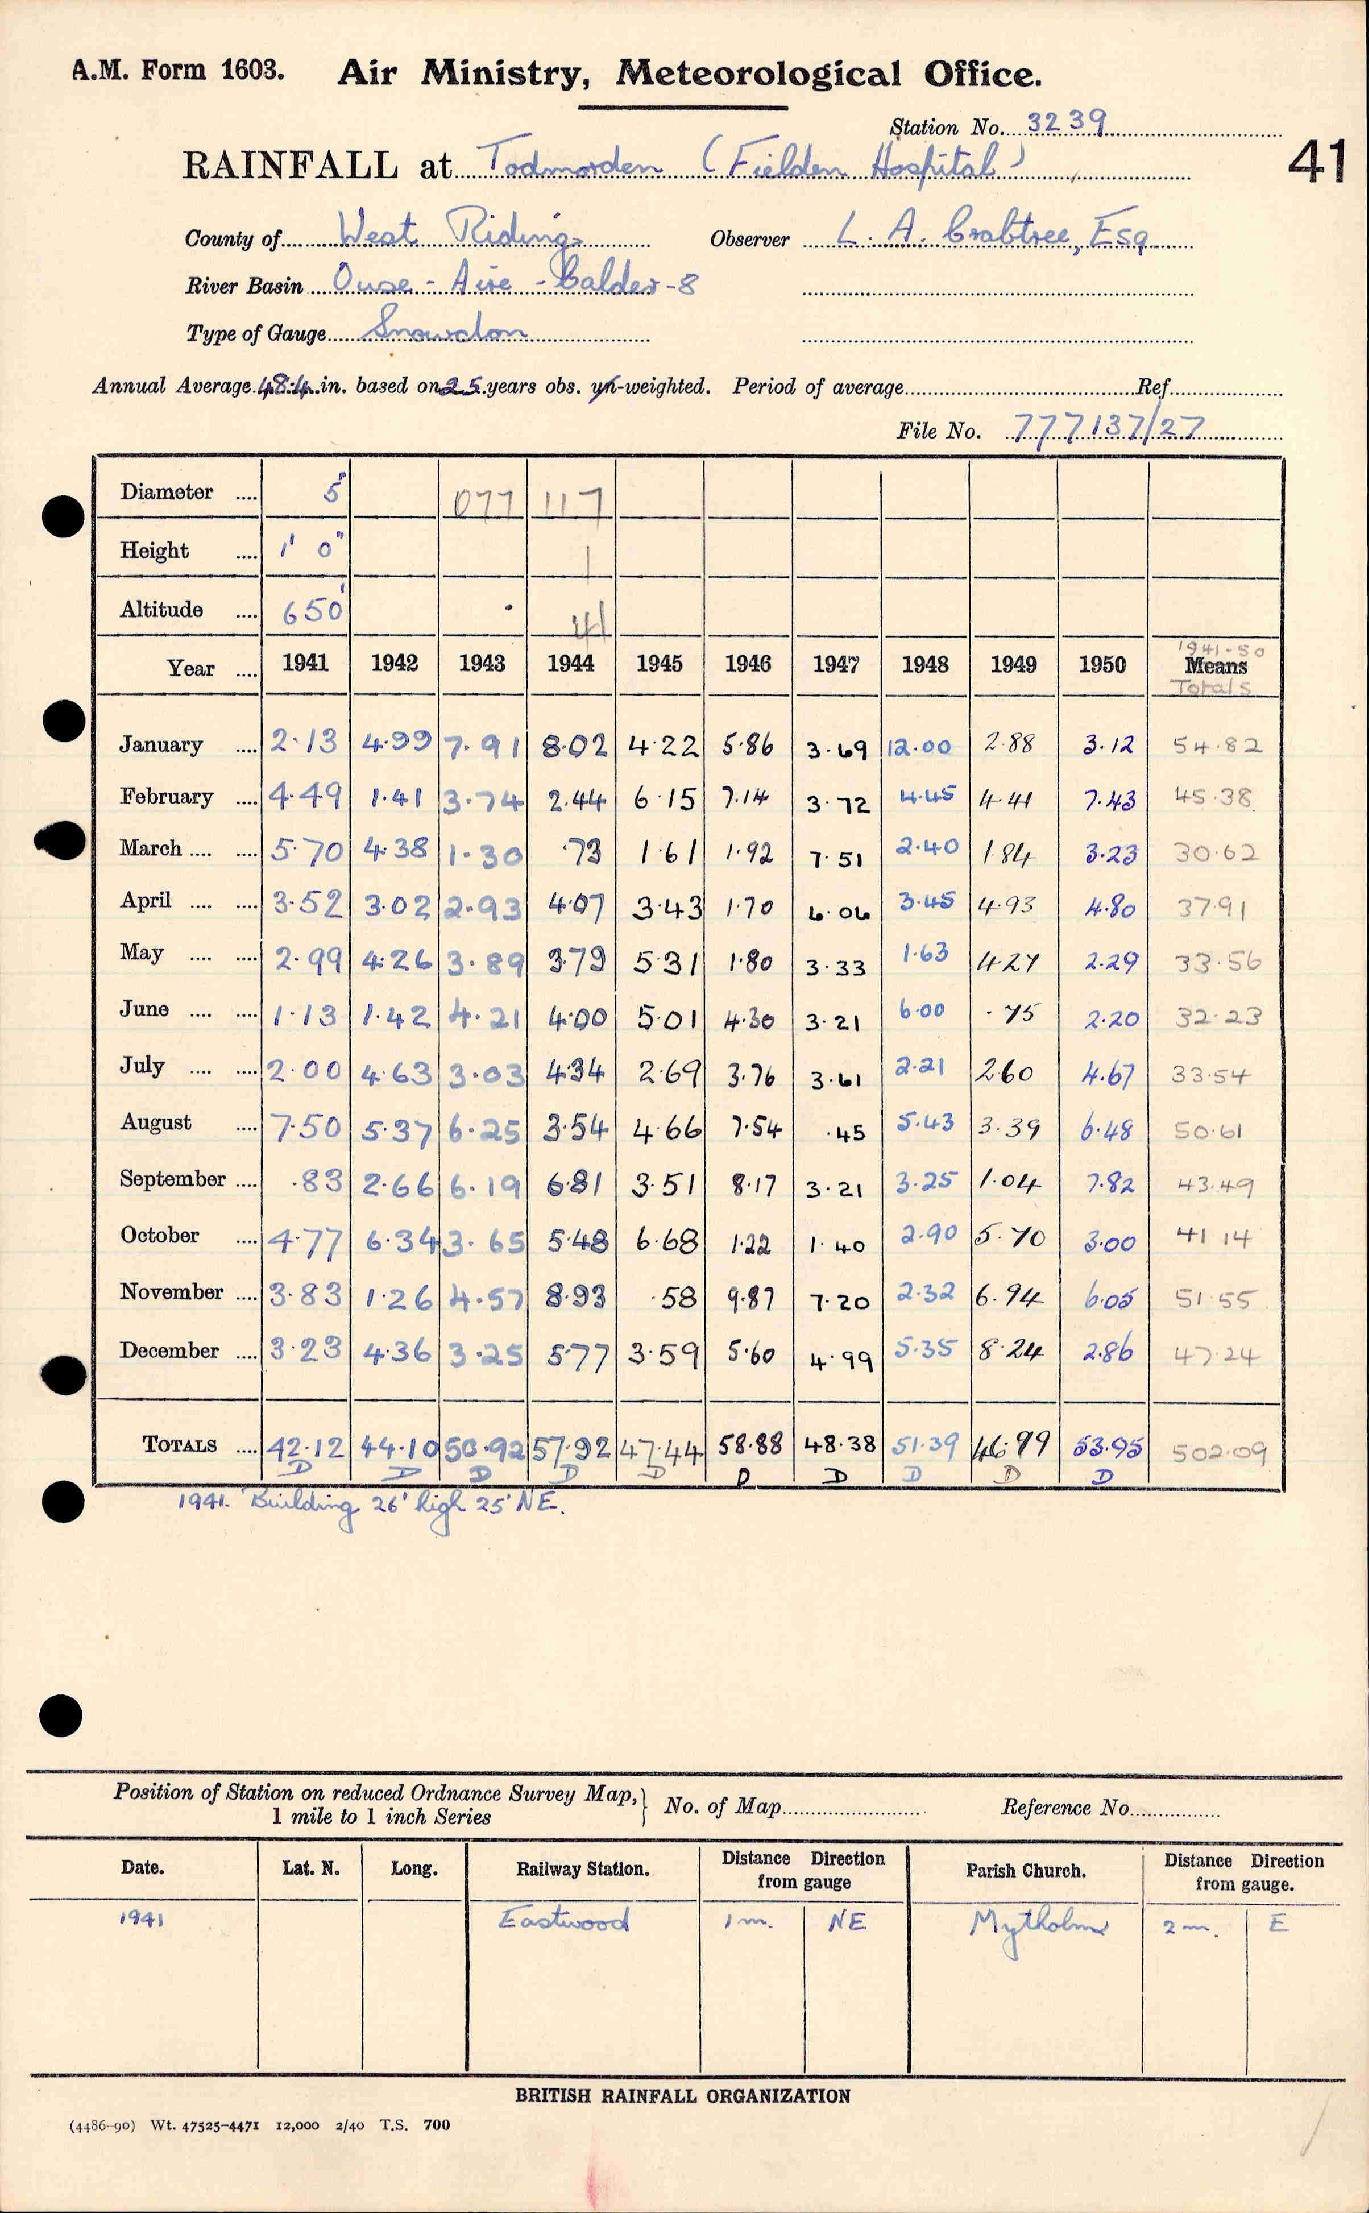 A.M. Form 1603. Air Ministry, Meteorological Office.
Station No. 3239
41
RAINFALL at Todmorden (Fielden Hospital)
County of West Riding Observer L. A. Crabtree, Esq
River Basin Ouse - Aire - Calder - 8
Type of Gauge Snowdon
Annual Average 48.4 in. based on 25 years obs. un-weighted. Period of average Ref.
File No. 777137/27
Diameter .... 5" 077 117
Height .... 1' 0" 1
Altitude .... 650' 41
1941-50
Year .... 1941 1942 1943 1944 1945 1946 1947 1948 1949 1950 Means
Totals
January .... 2.13 4.99 7.91 8.02 4.22 5.86 3.69 12.00 2.88 3.12 54.82
February .... 4.49 1.41 3.74 2.44 6.15 7.14 3.72 4.45 4.41 7.43 45.38
March .... .... 5.70 4.38 1.30 .73 1.61 1.92 7.51 2.40 1.84 3.23 30.62
April .... .... 3.52 3.02 2.93 4.07 3.43 1.70 6.06 3.45 4.93 4.80 37.91
May .... .... 2.99 4.26 3.89 3.79 5.31 1.80 3.33 1.63 4.27 2.29 33.56
June .... .... 1.13 1.42 4.21 4.00 5.01 4.30 3.21 6.00 .75 2.20 32.23
July .... .... 2.00 4.63 3.03 4.34 2.69 3.76 3.61 2.21 2.60 4.67 33.54
August .... 7.50 5.37 6.25 3.54 4.66 7.54 .45 5.43 3.39 6.48 50.61
September .... .83 2.66 6.19 6.81 3.51 8.17 3.21 3.25 1.04 7.82 43.49
October .... 4.77 6.34 3.65 5.48 6.68 1.22 1.40 2.90 5.70 3.00 41.14
November .... 3.83 1.26 4.57 8.93 .58 9.87 7.20 2.32 6.94 6.05 51.55
December .... 3.23 4.36 3.25 5.77 3.59 5.60 4.99 5.35 8.24 2.86 47.24
TOTALS .... 42.12 44.10 50.92 57.92 47.44 58.88 48.38 51.39 46.99 53.95 502.09
D D D D D D D D D D
1941. Building 26' high 25' NE.
Position of Station on reduced Ordnance Survey Map, } No. of Map Reference No.
1 mile to 1 inch Series
Date. Lat. N. Long. Railway Station. Distance Direction from gauge Parish Church. Distance Direction from gauge.
1941 Eastwood 1 m. NE Mytholm 2 m. E
BRITISH RAINFALL ORGANIZATION
(4486-90) Wt. 47525-4471 12,000 2/40 T.S. 700